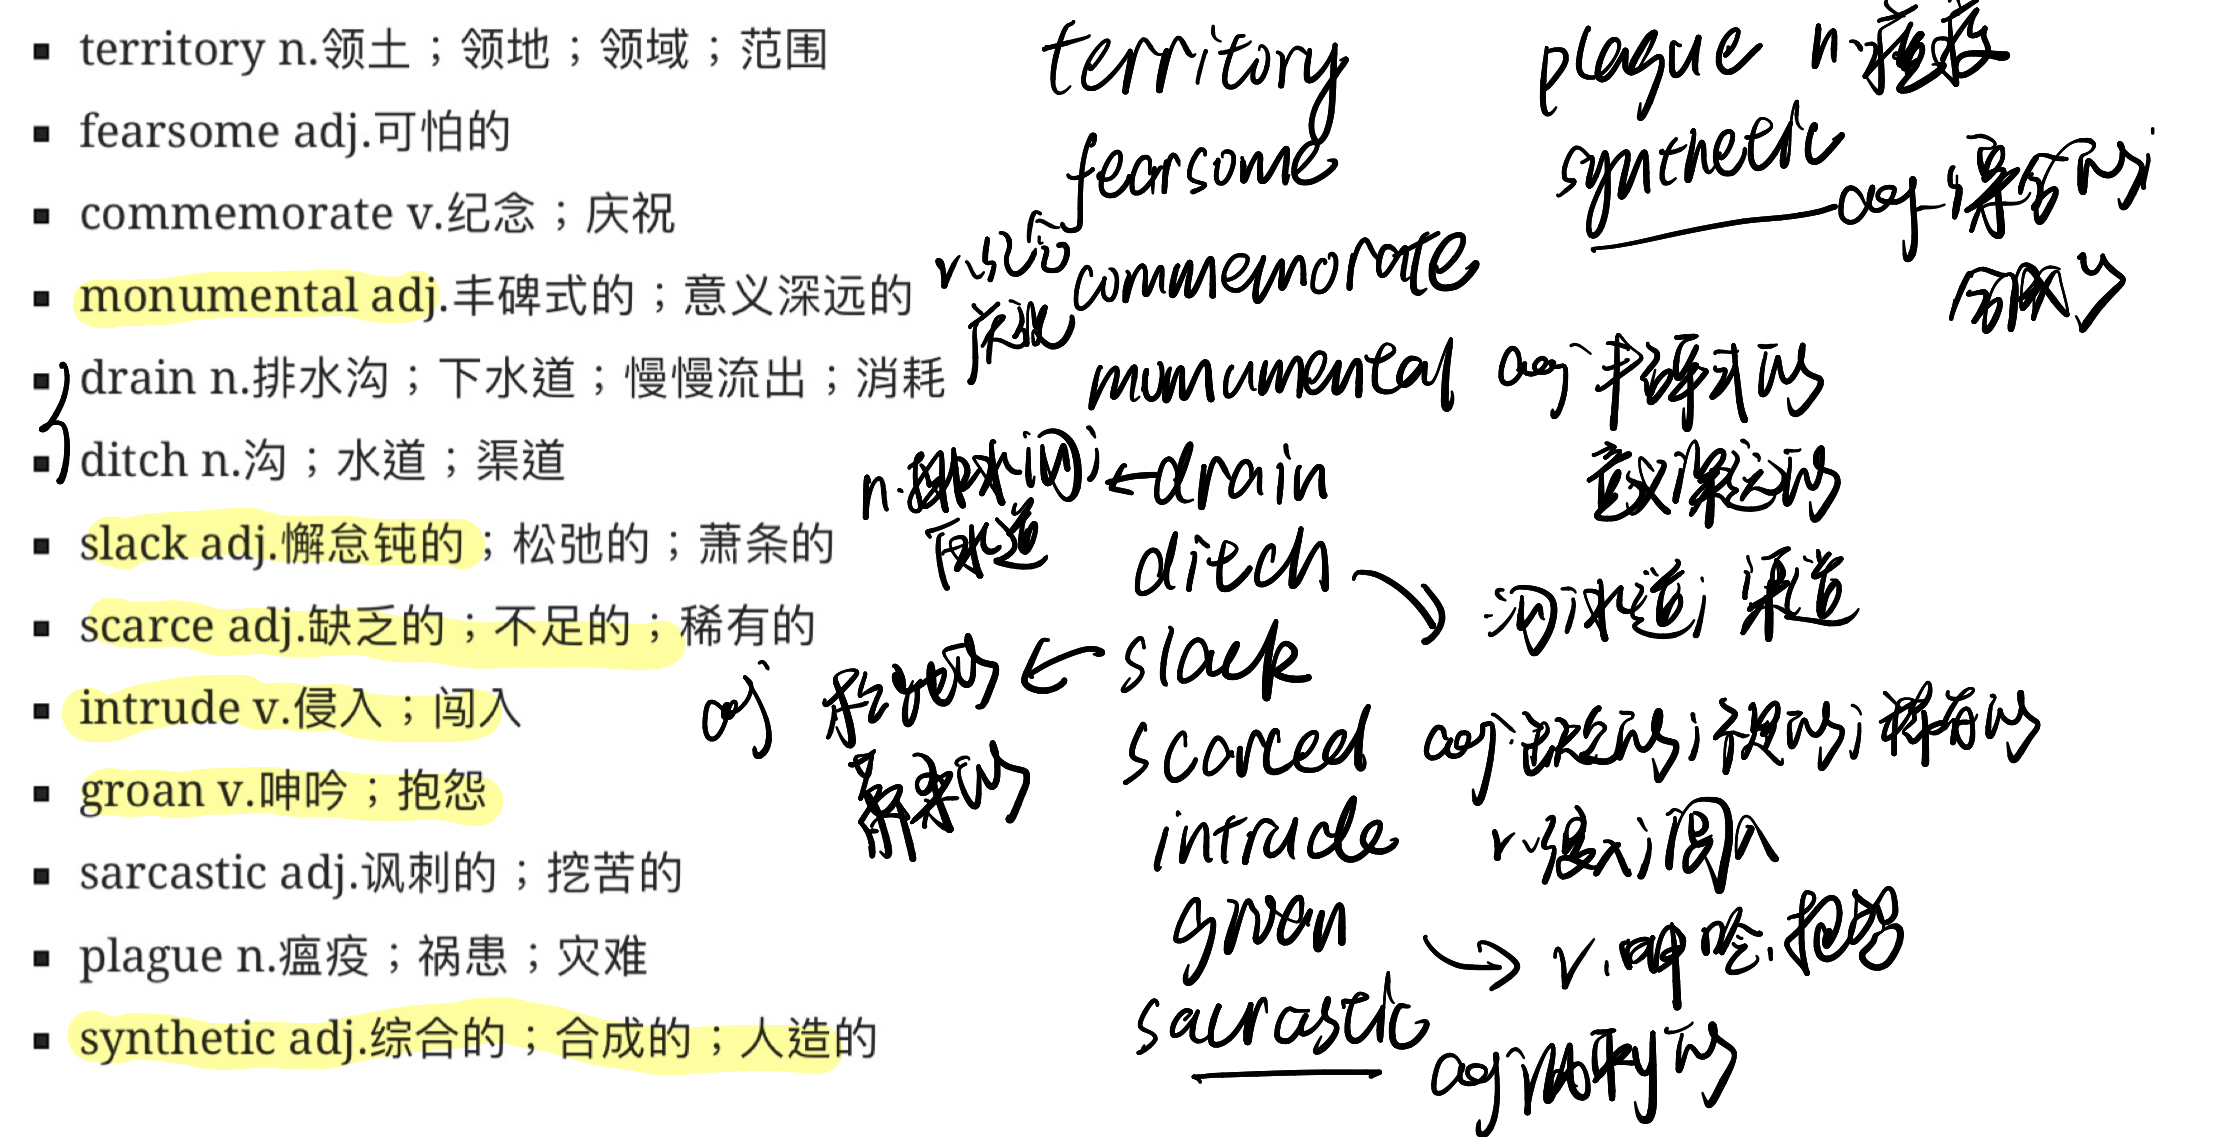 territory n.领土；领地；领域；范围
fearsome adj.可怕的
commemorate v.纪念；庆祝
monumental adj.丰碑式的；意义深远的
drain n.排水沟；下水道；慢慢流出；消耗
ditch n.沟；水道；渠道
slack adj.懈怠钝的；松弛的；萧条的
scarce adj.缺乏的；不足的；稀有的
intrude v.侵入；闯入
groan v.呻吟；抱怨
sarcastic adj.讽刺的；挖苦的
plague n.瘟疫；祸患；灾难
synthetic adj.综合的；合成的；人造的
territory
fearsome
v.纪念
庆祝
commemorate
monumental adj 丰碑式的
意义深远的
n.排水沟；
下水道
drain
ditch
沟；水道；渠道
adj
松弛的
萧条的
slack
scarced adj.缺乏的；不足的；稀有的
intrude v.侵入；闯入
groan v.呻吟.抱怨
sacrastic adj 讽刺的
plague n.瘟疫
synthetic adj 综合的；
合成的